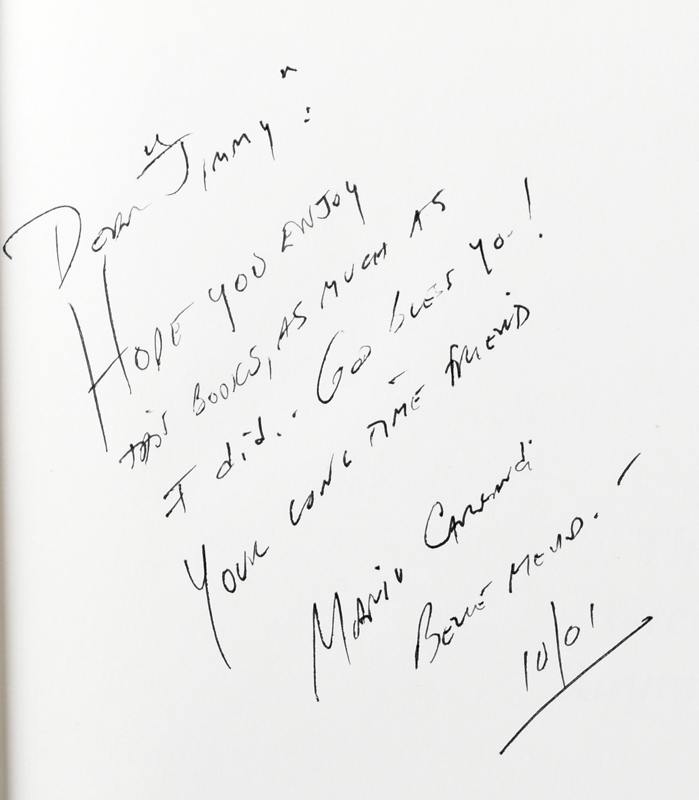 Dear "Jimmy":
HOPE YOU ENJOY
this BOOKS, AS MUCH AS
I did.- God bless yo!
YOUR LONG TIME FRIEND
MARIO
10/01